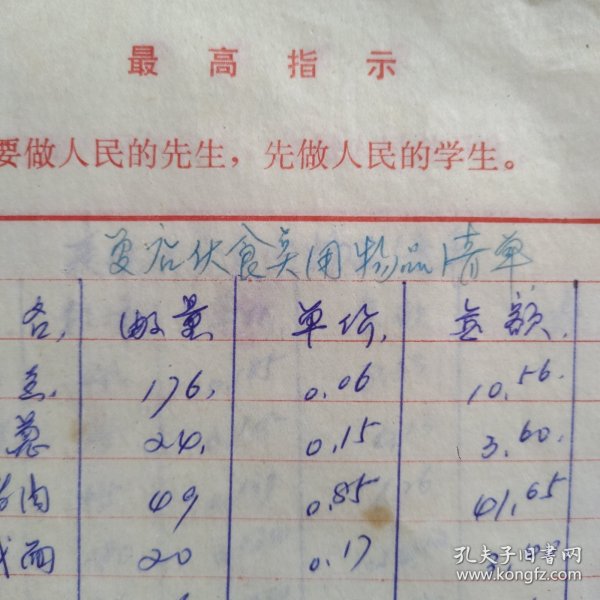 最高指示
要做人民的先生，先做人民的学生。
伙食实用物品清单
名, 数量 单价, 金额,
176, 0.06 10.56.
葱 24, 0.15 3.60.
肉 49 0.85 41.65
面 20 0.17
孔夫子旧书网
www.kongfz.com